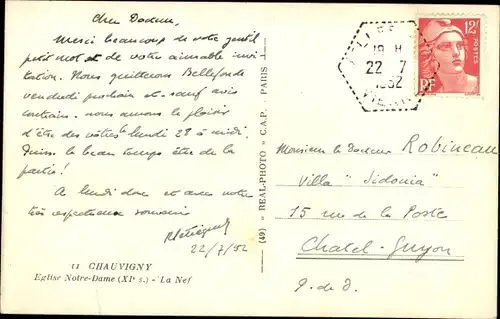 Cher Docteur,
Merci beaucoup de votre gentil
petit mot et de votre aimable invi
tation. Nous quitterons Bellefonds
vendredi prochain et sauf avis
contraire nous aurons le plaisir
d'être des vôtres lundi 28 à midi.
Puisse le beau temps être de la
partie!
A lundi donc et avec notre
très respectueux souvenir
22/7/52
11 CHAUVIGNY
Eglise Notre-Dame (XIe s.) - La Nef
(49) « REAL-PHOTO » C.A.P. PARIS
19 H
22 7
1952
VIENNE
12F
POSTES
RF
Monsieur le docteur Robineau
Villa "Sidonia"
15 rue de la Poste
Chatel-Guyon
P. de D.